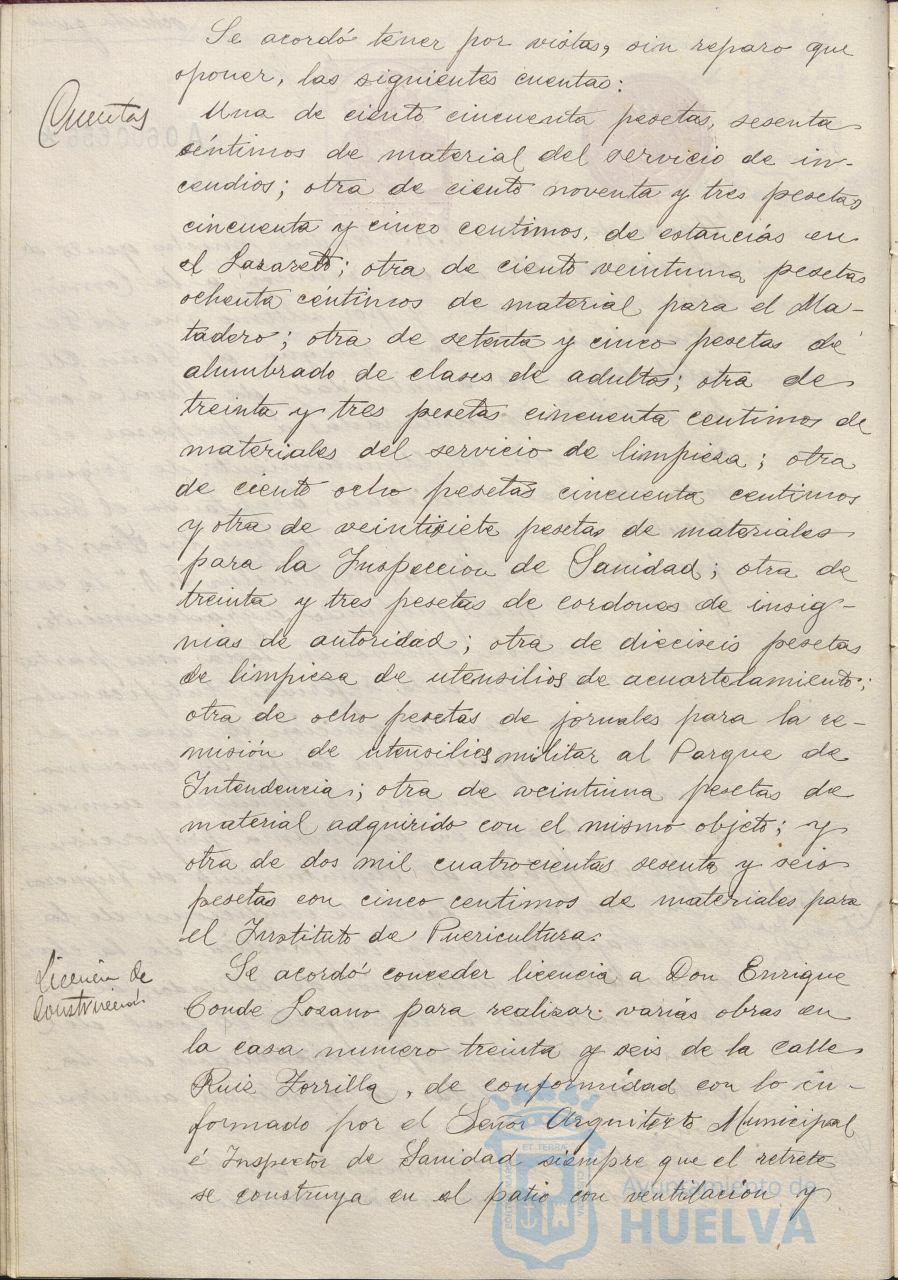 Se acordó tener por vistas, sin reparo que
oponer, las siguientes cuentas:
Cuentas
Una de ciento cincuenta pesetas, sesenta
céntimos de material del servicio de in-
cendios; otra de ciento noventa y tres pesetas
cincuenta y cinco centimos, de estancias en
el Lazareto; otra de ciento veintiuna pesetas
ochenta céntimos de material para el Ma-
tadero; otra de setenta y cinco pesetas de
alumbrado de clases de adultos; otra de
treinta y tres pesetas cincuenta centimos de
materiales del servicio de limpieza; otra
de ciento ocho pesetas cincuenta centimos
y otra de veintisiete pesetas de materiales
para la Inspeccion de Sanidad; otra de
treinta y tres pesetas de cordones de insig-
nias de autoridad; otra de dieciseis pesetas
de limpieza de utensilios de acuartelamiento;
otra de ocho pesetas de jornales para la re-
misión de utensilios militar al Parque de
Intendencia; otra de veintiuna pesetas de
material adquirido con el mismo objeto; y
otra de dos mil cuatrocientas sesenta y seis
pesetas con cinco centimos de materiales para
el Instituto de Puericultura.
Licencia de
Construcción
Se acordó conceder licencia a Don Enrique
Conde Lozano para realizar varias obras en
la casa numero treinta y seis de la calle
Ruiz Zorrilla, de conformidad con lo in-
formado por el Señor Arquitecto Municipal
é Inspector de Sanidad siempre que el retrete
se construya en el patio con ventilación y
Ayuntamiento de
HUELVA